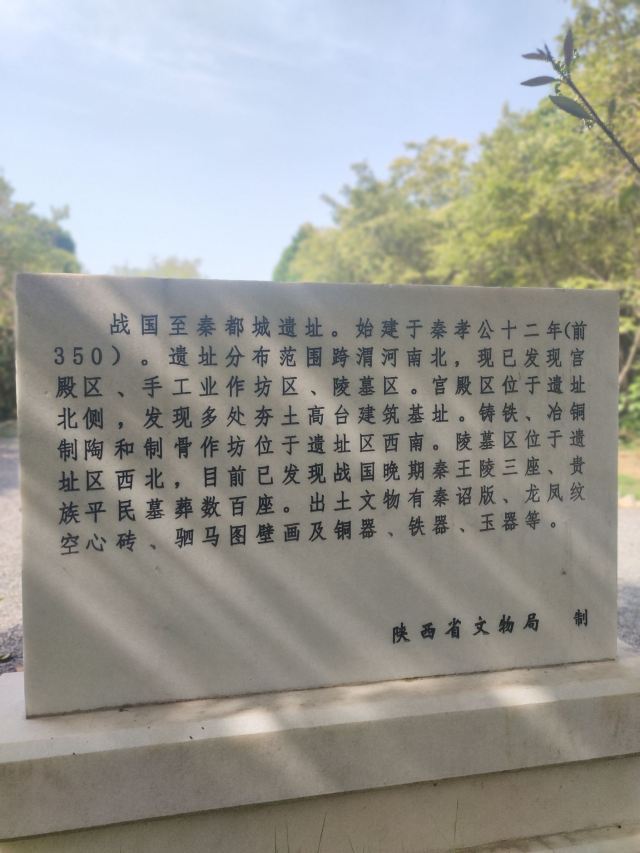 战国至秦都城遗址。始建于秦孝公十二年(前
350)。遗址分布范围跨渭河南北，现已发现宫
殿区、手工业作坊区、陵墓区。宫殿区位于遗址
北侧，发现多处夯土高台建筑基址。铸铁、冶铜
制陶和制骨作坊位于遗址区西南。陵墓区位于遗
址区西北，目前已发现战国晚期秦王陵三座、贵
族平民墓葬数百座。出土文物有秦诏版、龙凤纹
空心砖、驷马图壁画及铜器、铁器、玉器等。
陕西省文物局 制